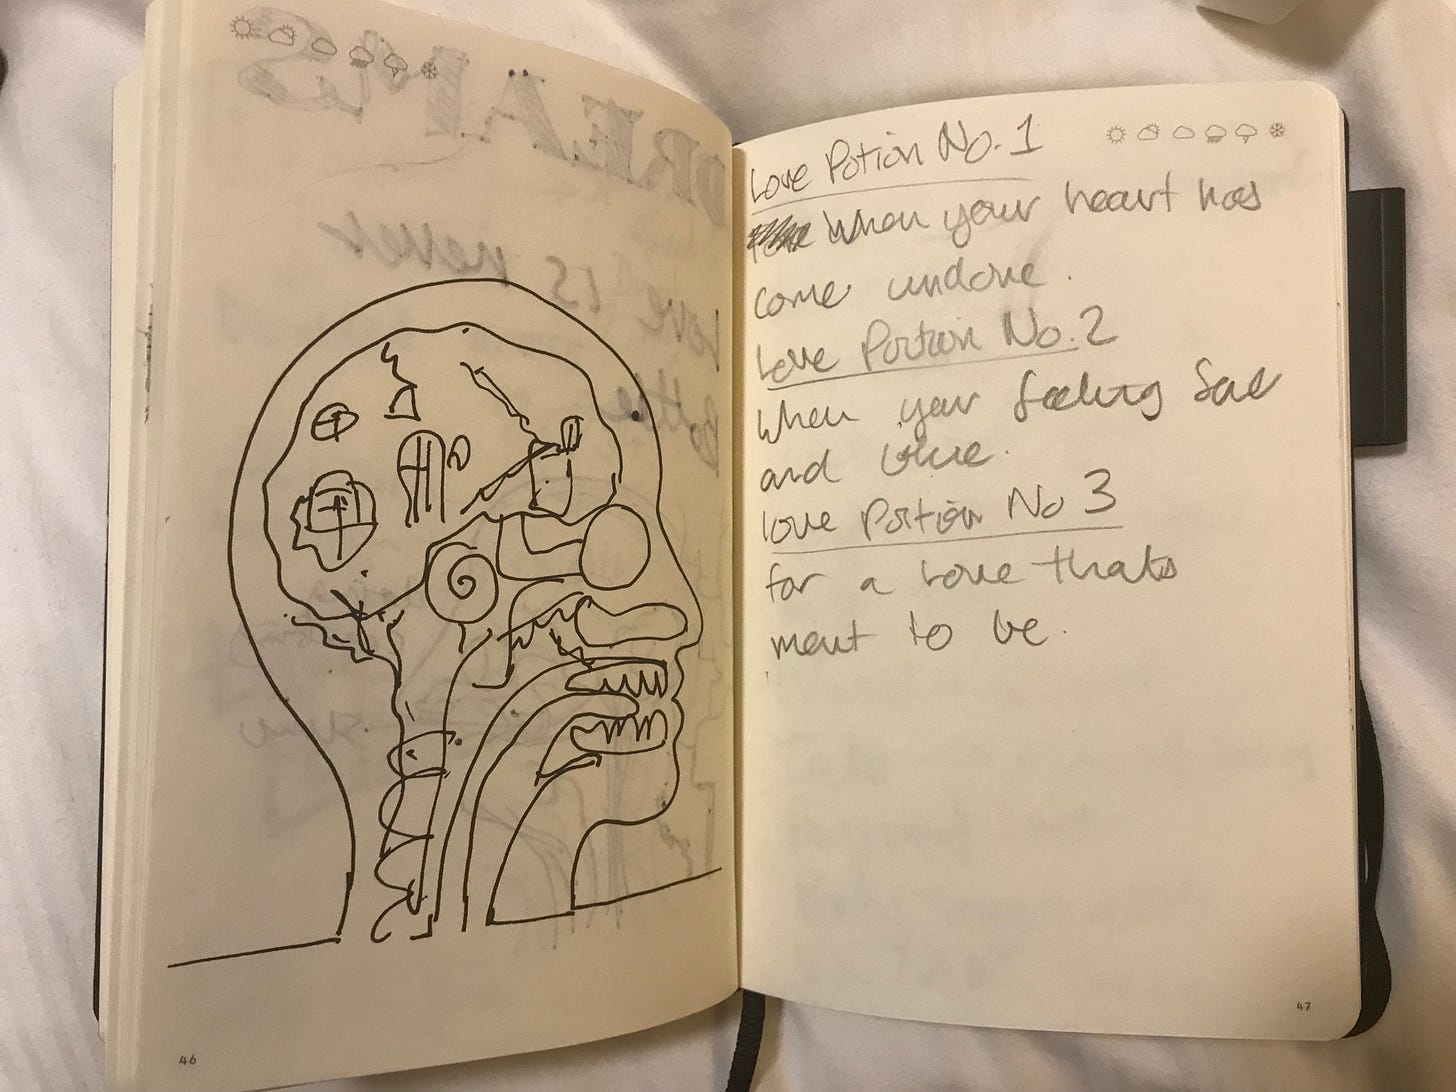 Love Potion No. 1
When your heart has
come undone.
Love Portion No. 2
When your feeling sad
and blue.
love Portion No 3
for a love thats
ment to be.
46
47